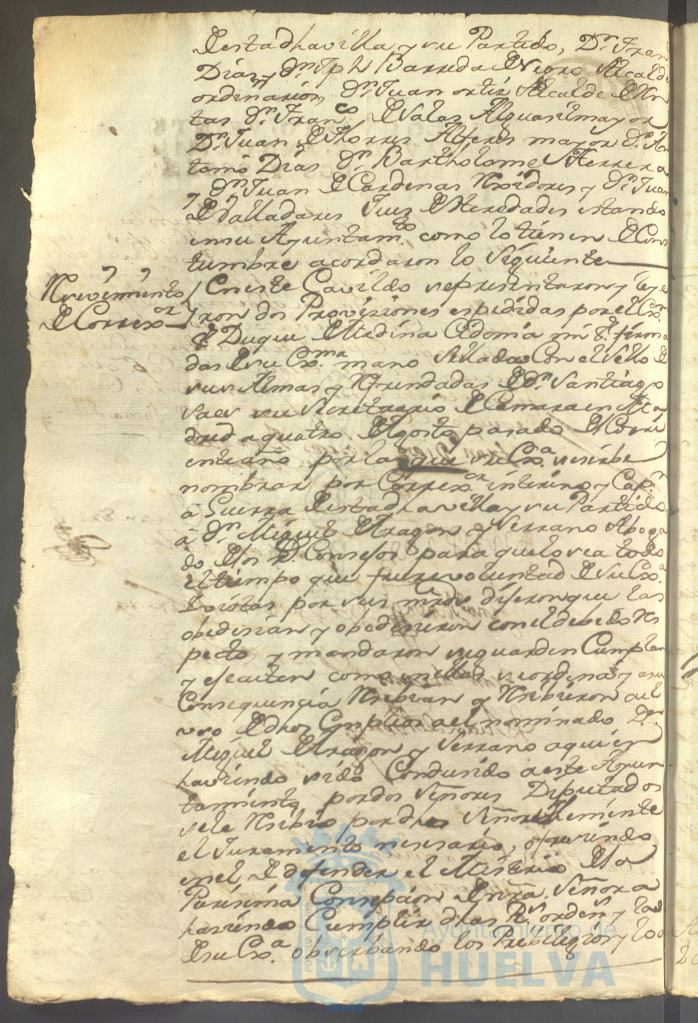 de esta dha villa y su Partido, Dn. Fran
Dias, y dn. Jph Barreda Negro Alcald
ordinarios, dn. Juan ortiz Alcalde
tas dn. Franco. de Salas Alguasilmayor
Dn. Juan de Thorres Alferes mayor dn.
tonio Dias dn. Bartholome Herrera
y dn. Juan de Cardenas Rexidores y dn. Juan
de Valladares Juez de Heredades estando
en su Ayuntamto. como lo tienen de Cos
tumbre acordaron lo siguiente
Recevimiento
de Correxor.
En este Cavildo se presentaron y leye
ron dos Provisiones espedidas por el
Duque de Medina Cidonia mi Sr. firma
das de su Exma. mano selladas Con el sello de
sus Armas y Refrendadas de dn. Santiago
Saes su Secretrario de Camara en Ma
drid a quatro de Agosto pasado de Corri
ente año por las que su Exa. se sirbe
nombrar por Correxor. interino y Capn.
á Guerra de esta dha villa y su Partido
á dn. Miguel de Aragon y Serrano Aboga
do de los Rs. Consejos para que lo sea todo
el tiempo que fuere voluntad de su Exa.
Y vistas por sus mrds. dijeron que las
obedesian y obedesieron con el debido Res
pecto y mandaron se guarden Cumplan
y ejecuten como en ellas se ordena y en su
Consequencia Resivan y Resivieron al
uso de dhos Empleos a el nominado Dn.
Miguel de Aragon y Serrano a quien
haviendo sido Condusido a este Ayun
tamiento por dos Señores Diputados
se le Resivio por dho Señor
el Juramento nesesario, ofresiendo
en el de defender el Misterio de la
Purisima Consepsion de nra. Señora
hasiendo Cumplir dhas Rs. ordens. y las
de su Exa. observando los Prebilegios y
Ayuntamiento de
HUELVA